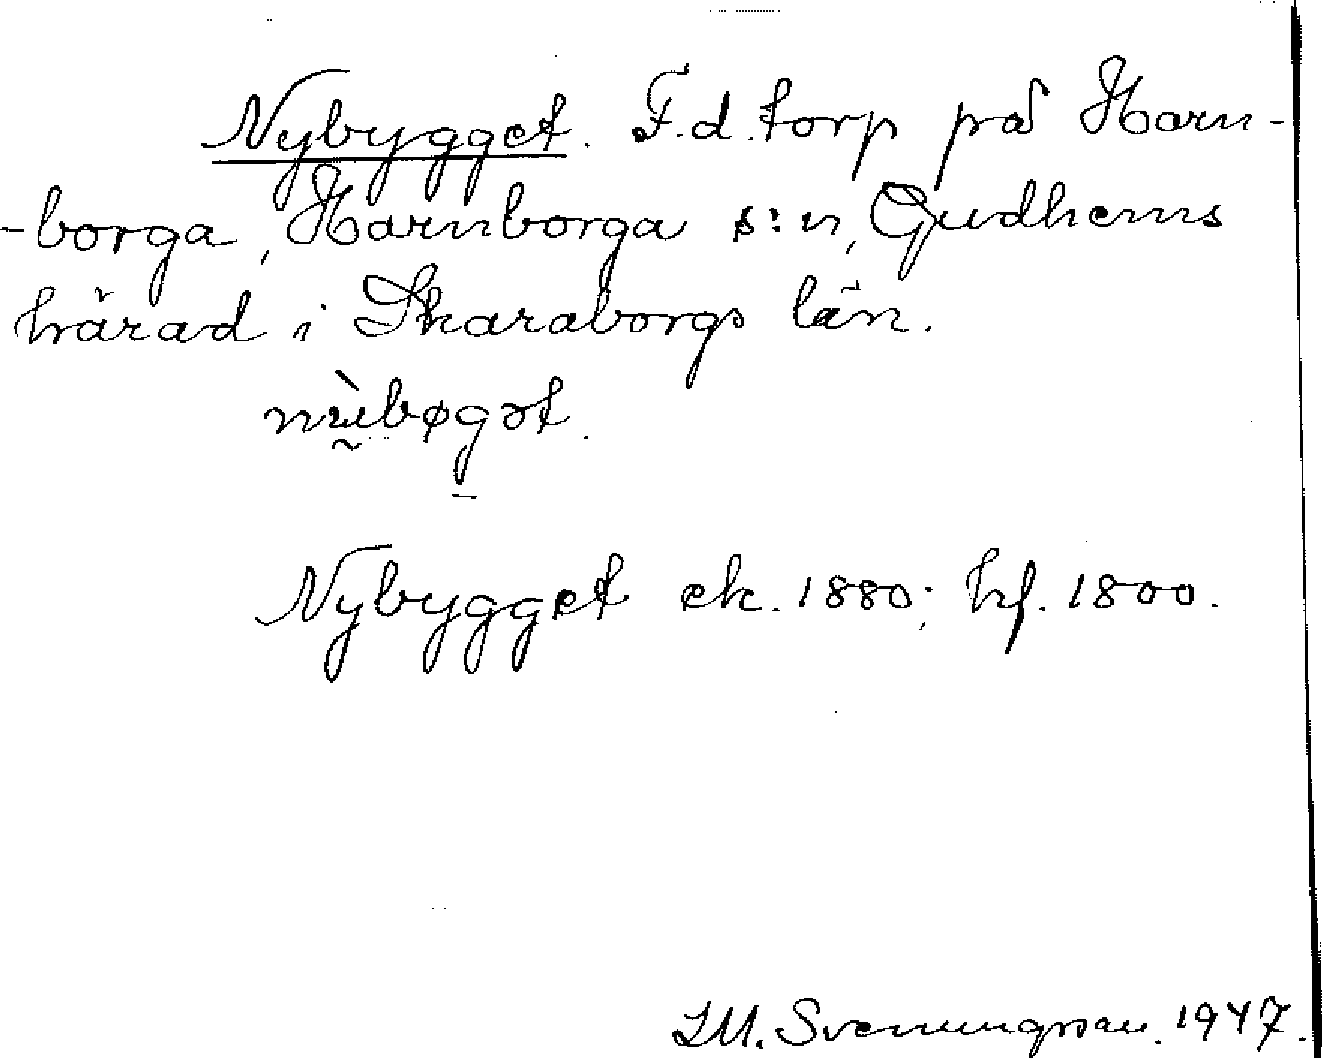 Nybygget. F.d. torp på Horn-
-borga, Hornborga s:n, Gudhems
härad i Skaraborgs län.
nỳbøgət.
Nybygget ek. 1880; hf. 1800.
I.M. Svenungsson. 1947.